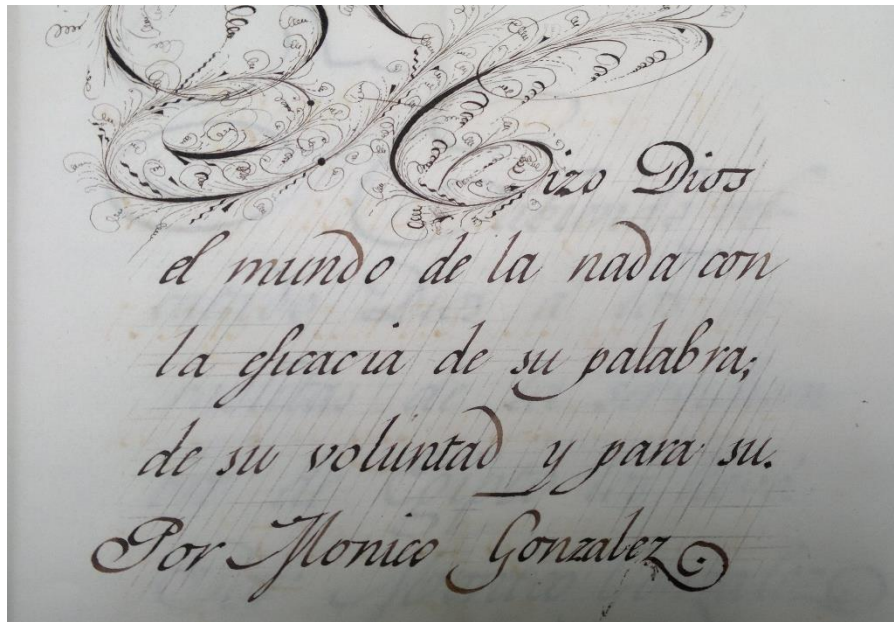 Hizo Dios
el mundo de la nada con
la eficacia de su palabra;
de su voluntad y para su.
Por Monico Gonzalez.